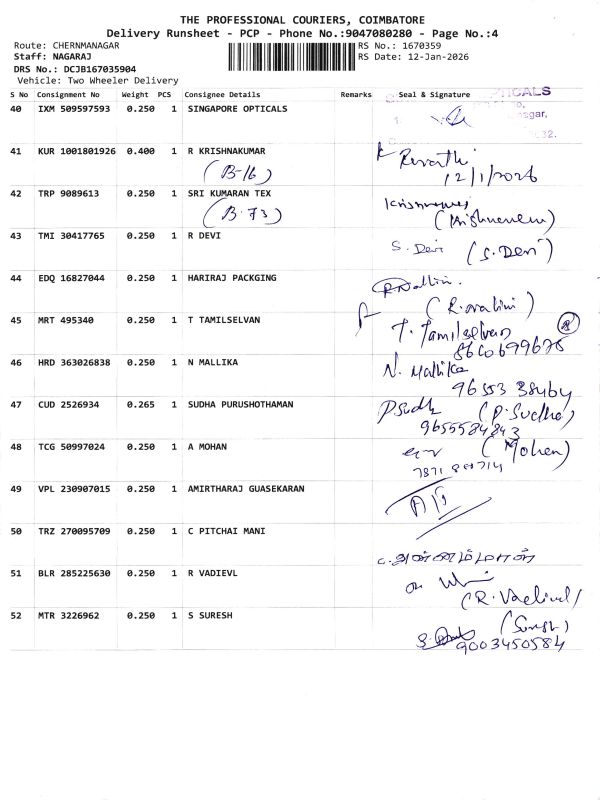 THE PROFESSIONAL COURIERS, COIMBATORE
Delivery Runsheet - PCP - Phone No.:9047080280 - Page No.:4
Route: CHERNMANAGAR
RS No.: 1670359
Staff: NAGARAJ
RS Date: 12-Jan-2026
DRS No.: DCJB167035904
Vehicle: Two Wheeler Delivery
S No Consignment No Weight PCS Consignee Details Remarks Seal & Signature
40 IXM 509597593 0.250 1 SINGAPORE OPTICALS
41 KUR 1001801926 0.400 1 R KRISHNAKUMAR
(B-16)
Revathi
12/1/2026
42 TRP 9089613 0.250 1 SRI KUMARAN TEX
(B-73)
43 TMI 30417765 0.250 1 R DEVI
S. Devi (S. Devi)
44 EDQ 16827044 0.250 1 HARIRAJ PACKGING
45 MRT 495340 0.250 1 T TAMILSELVAN
T. Tamilselvan
8660699676
46 HRD 363026838 0.250 1 N MALLIKA
N. Mallika
47 CUD 2526934 0.265 1 SUDHA PURUSHOTHAMAN
PSudh (P. Sudha)
9655584843
48 TCG 50997024 0.250 1 A MOHAN
(Mohan)
49 VPL 230907015 0.250 1 AMIRTHARAJ GUASEKARAN
50 TRZ 270095709 0.250 1 C PITCHAI MANI
51 BLR 285225630 0.250 1 R VADIEVL
(R. Vadivel)
52 MTR 3226962 0.250 1 S SURESH
(Suresh)
9003450584